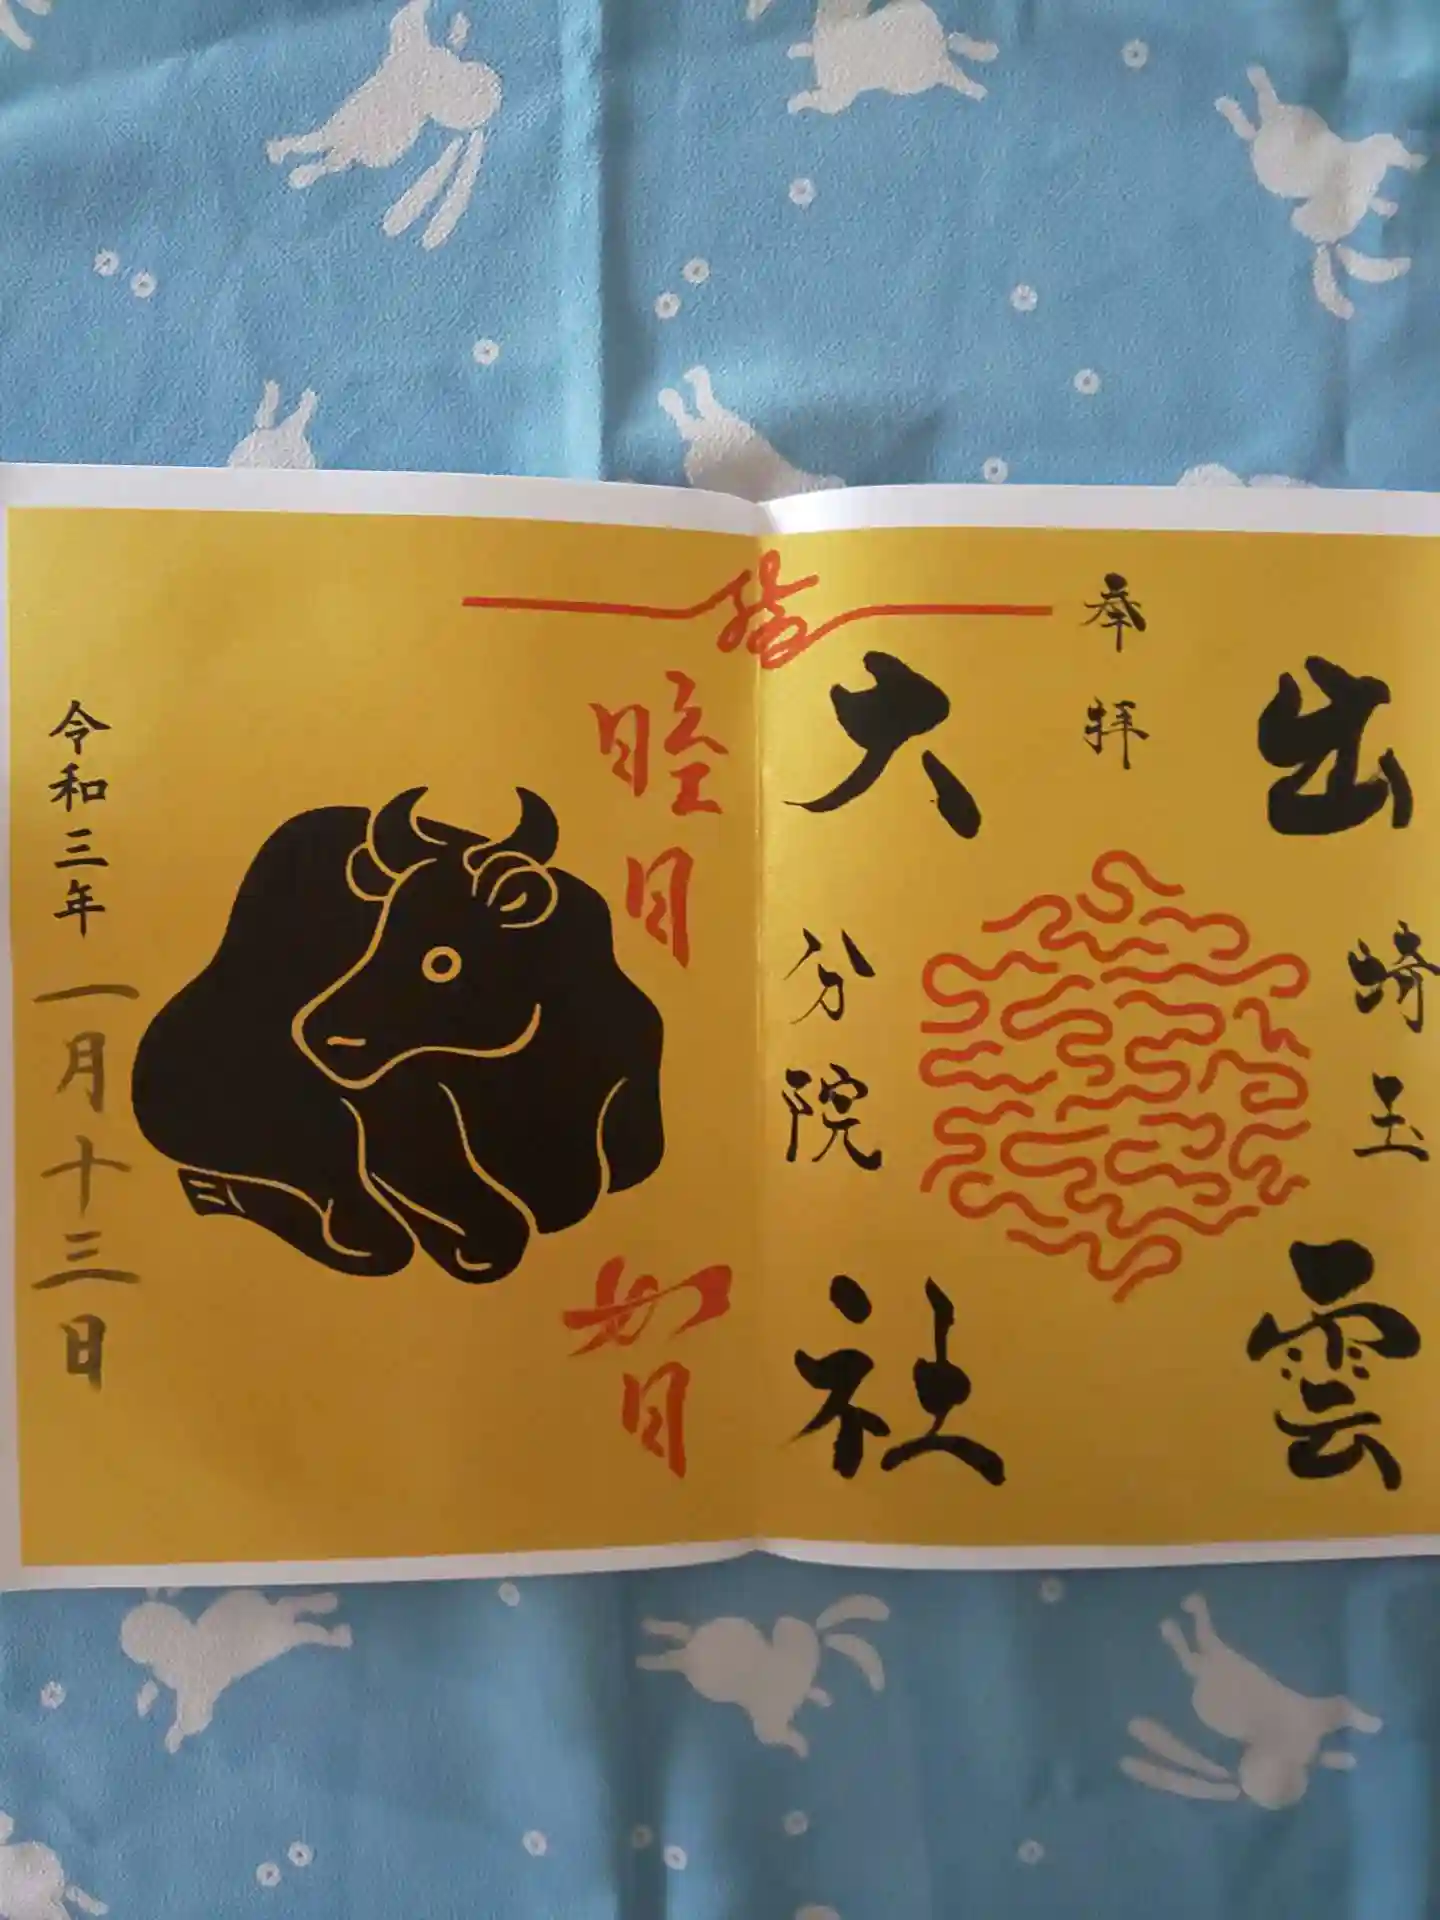 出雲
埼玉
奉拝
大社
分院
睦月
如月
令和三年一月十三日